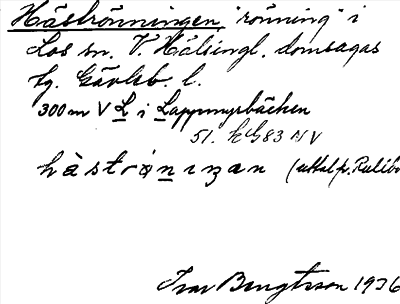 Häströnningen, "rönning" i
Los sn. V. Hälsingl. domsagas
tg. Gävleb. l.
300 m V L i Lappmyrbäcken
51. EG83 NV
häströnıŋan (uttal p.
Ivar Bengtsson 1936